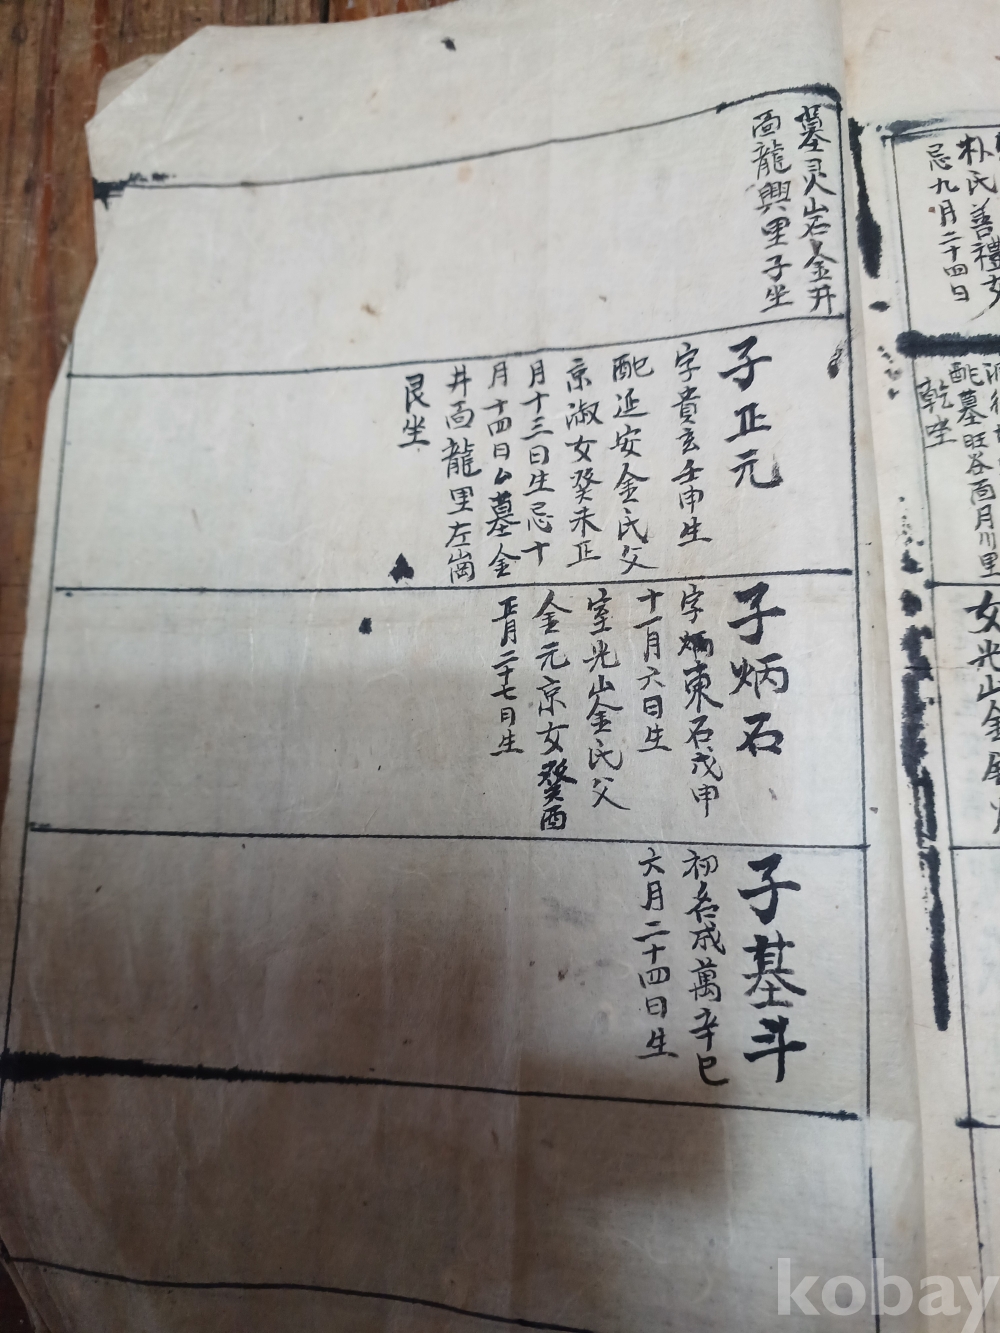 朴氏善禮女
忌九月二十四日
配墓旺谷面月川里
乾坐
女光山金
墓灵岩金井
面龍興里子坐
子正元
字貴玄壬申生
配延安金氏父
京淑女癸未正
月十三日生忌十
月十四日公墓金
井面龍里左崗
艮坐
子炳石
字炳東石戊申
十一月六日生
室光山金氏父
金元京女癸酉
正月二十七日生
子基斗
初名成萬辛巳
六月二十四日生
kobay